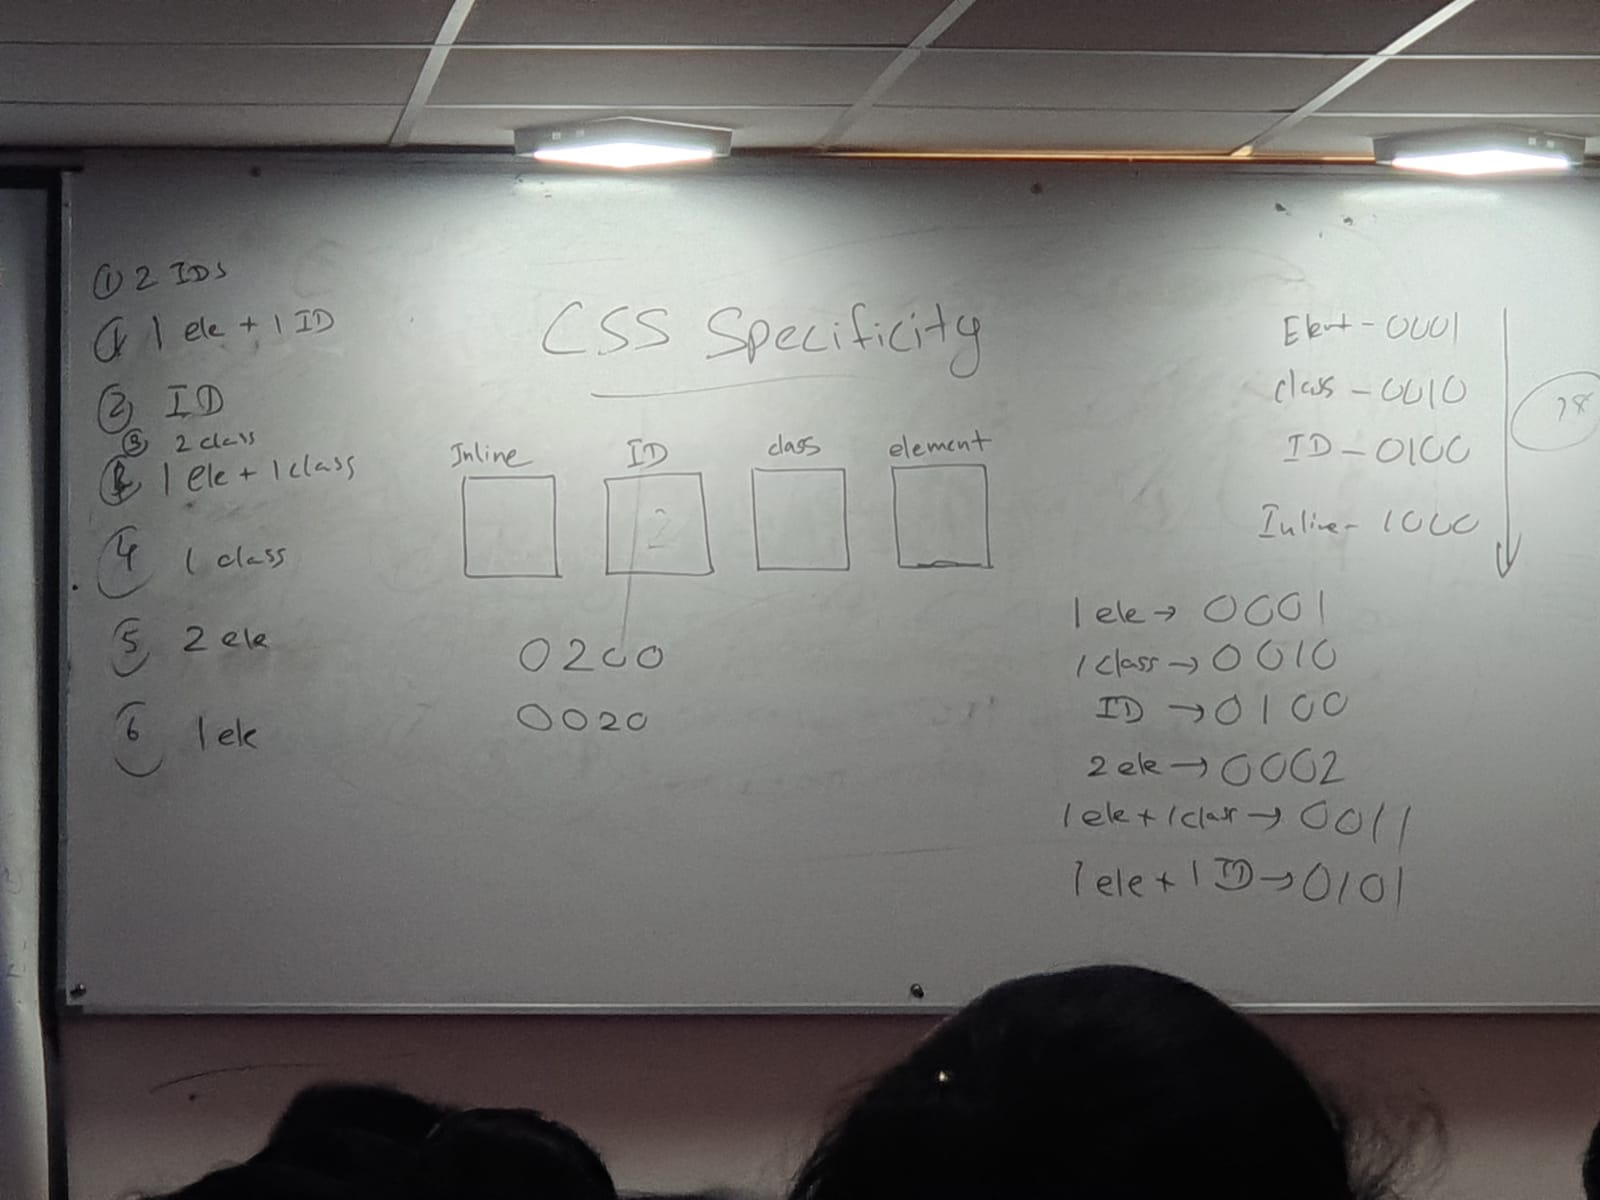 ① 2 IDs
① 1 ele + 1 ID
② ID
③ 2 class
1 ele + 1 class
④ 1 class
⑤ 2 ele
⑥ 1 ele
CSS Specificity
Inline ID class element
2
0200
0020
Elent - 0001
class - 0010
ID - 0100
Inline - 1000
1 ele → 0001
1 class → 0010
ID → 0100
2 ele → 0002
1 ele + 1 class → 0011
1 ele + 1 ID → 0101